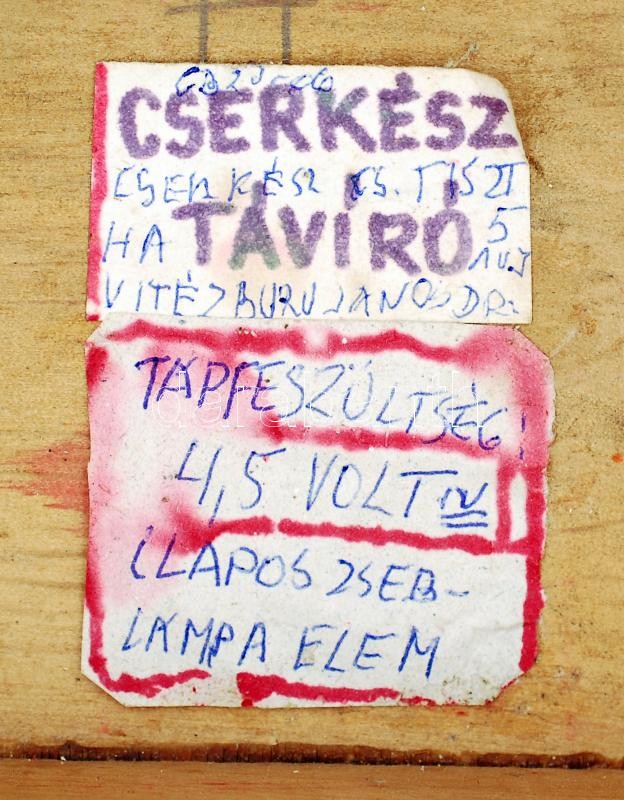 CSERKÉSZ
CSERKÉSZ CS. TISZT
TÁVÍRÓ
HA 5
VITÉZ BURUJANOS DR.
TÁPFESZÜLTSÉG!
4,5 VOLT
(LAPOS ZSEB-
LÁMPA ELEM